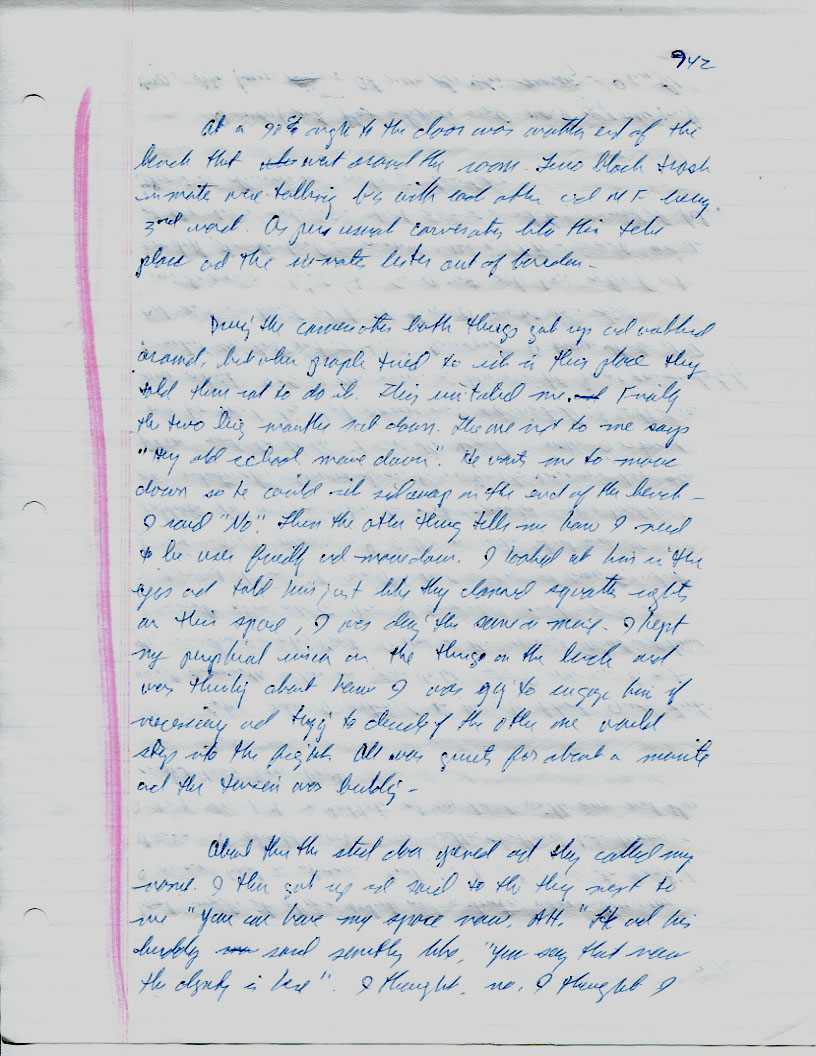 942
At a 90° angle to the door was another end of the
bench that went around the room. Two black trash
inmate were talking with each other and M F being
3rd word. As per usual conversation like this take
place and the in-mates listen out of boredom -
During the conversation both things got up and walked
around, but when people tried to sit in their place they
told them not to do it. This irritated me. Finally
the two big mouths sat down. The one next to me says
"Hey old school, move down". He wants me to move
down so he could sit sideways on the end of the bench -
I said "No". Then the other thing tells me how I need
to be user friendly and move down. I looked at him in the
eyes and told him just like they claimed squatter rights
on their space, I was doing the same in mine. I kept
my peripheral vision on the things on the bench and
was thinking about how I was going to engage him if
necessary and trying to decide if the other one would
step into the fight. All was quiet for about a minute
and the tension was building -
About then the steel door opened and they called my
name. I then got up and said to the thing next to
me "You can have my space now, AH." He and his
buddy said something like, "You say that now
the deputy is here". I thought, no, I thought I